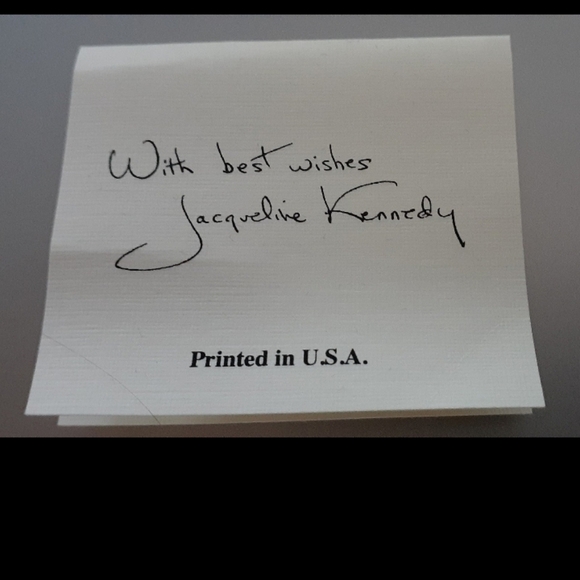 With best wishes
Jacqueline Kennedy
Printed in U.S.A.